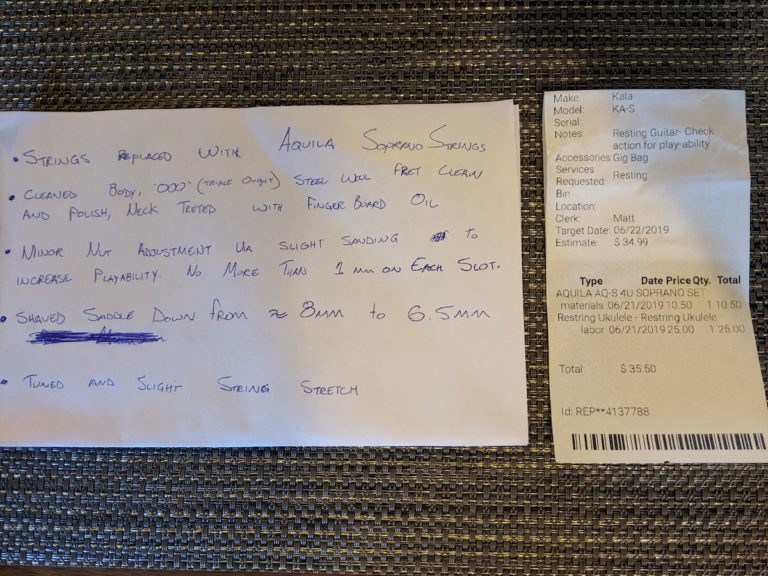 • Strings Replaced With Aquila Soprano Strings
• Cleaned Body, "000" (Triple Ought) Steel Wool Fret Clean
and Polish, Neck Treted with Finger Board Oil
• Minor Nut Adjustment Via Slight Sanding to
increase Playability. No More Than 1 mm on Each Slot.
• Shaved Saddle Down from ≈ 8mm to 6.5mm
• Tuned and Slight String Stretch
Make: Kala
Model: KA-S
Serial:
Notes: Resting Guitar- Check
action for play-ability
Accessories: Gig Bag
Services
Requested: Resting
Bin
Location:
Clerk: Matt
Target Date: 06/22/2019
Estimate: $ 34.99
Type Date Price Qty. Total
AQUILA AQ-S 4U SOPRANO SET
materials 06/21/2019 10.50 1 10.50
Restring Ukulele - Restring Ukulele
labor 06/21/2019 25.00 1 25.00
Total: $ 35.50
Id: REP**4137788